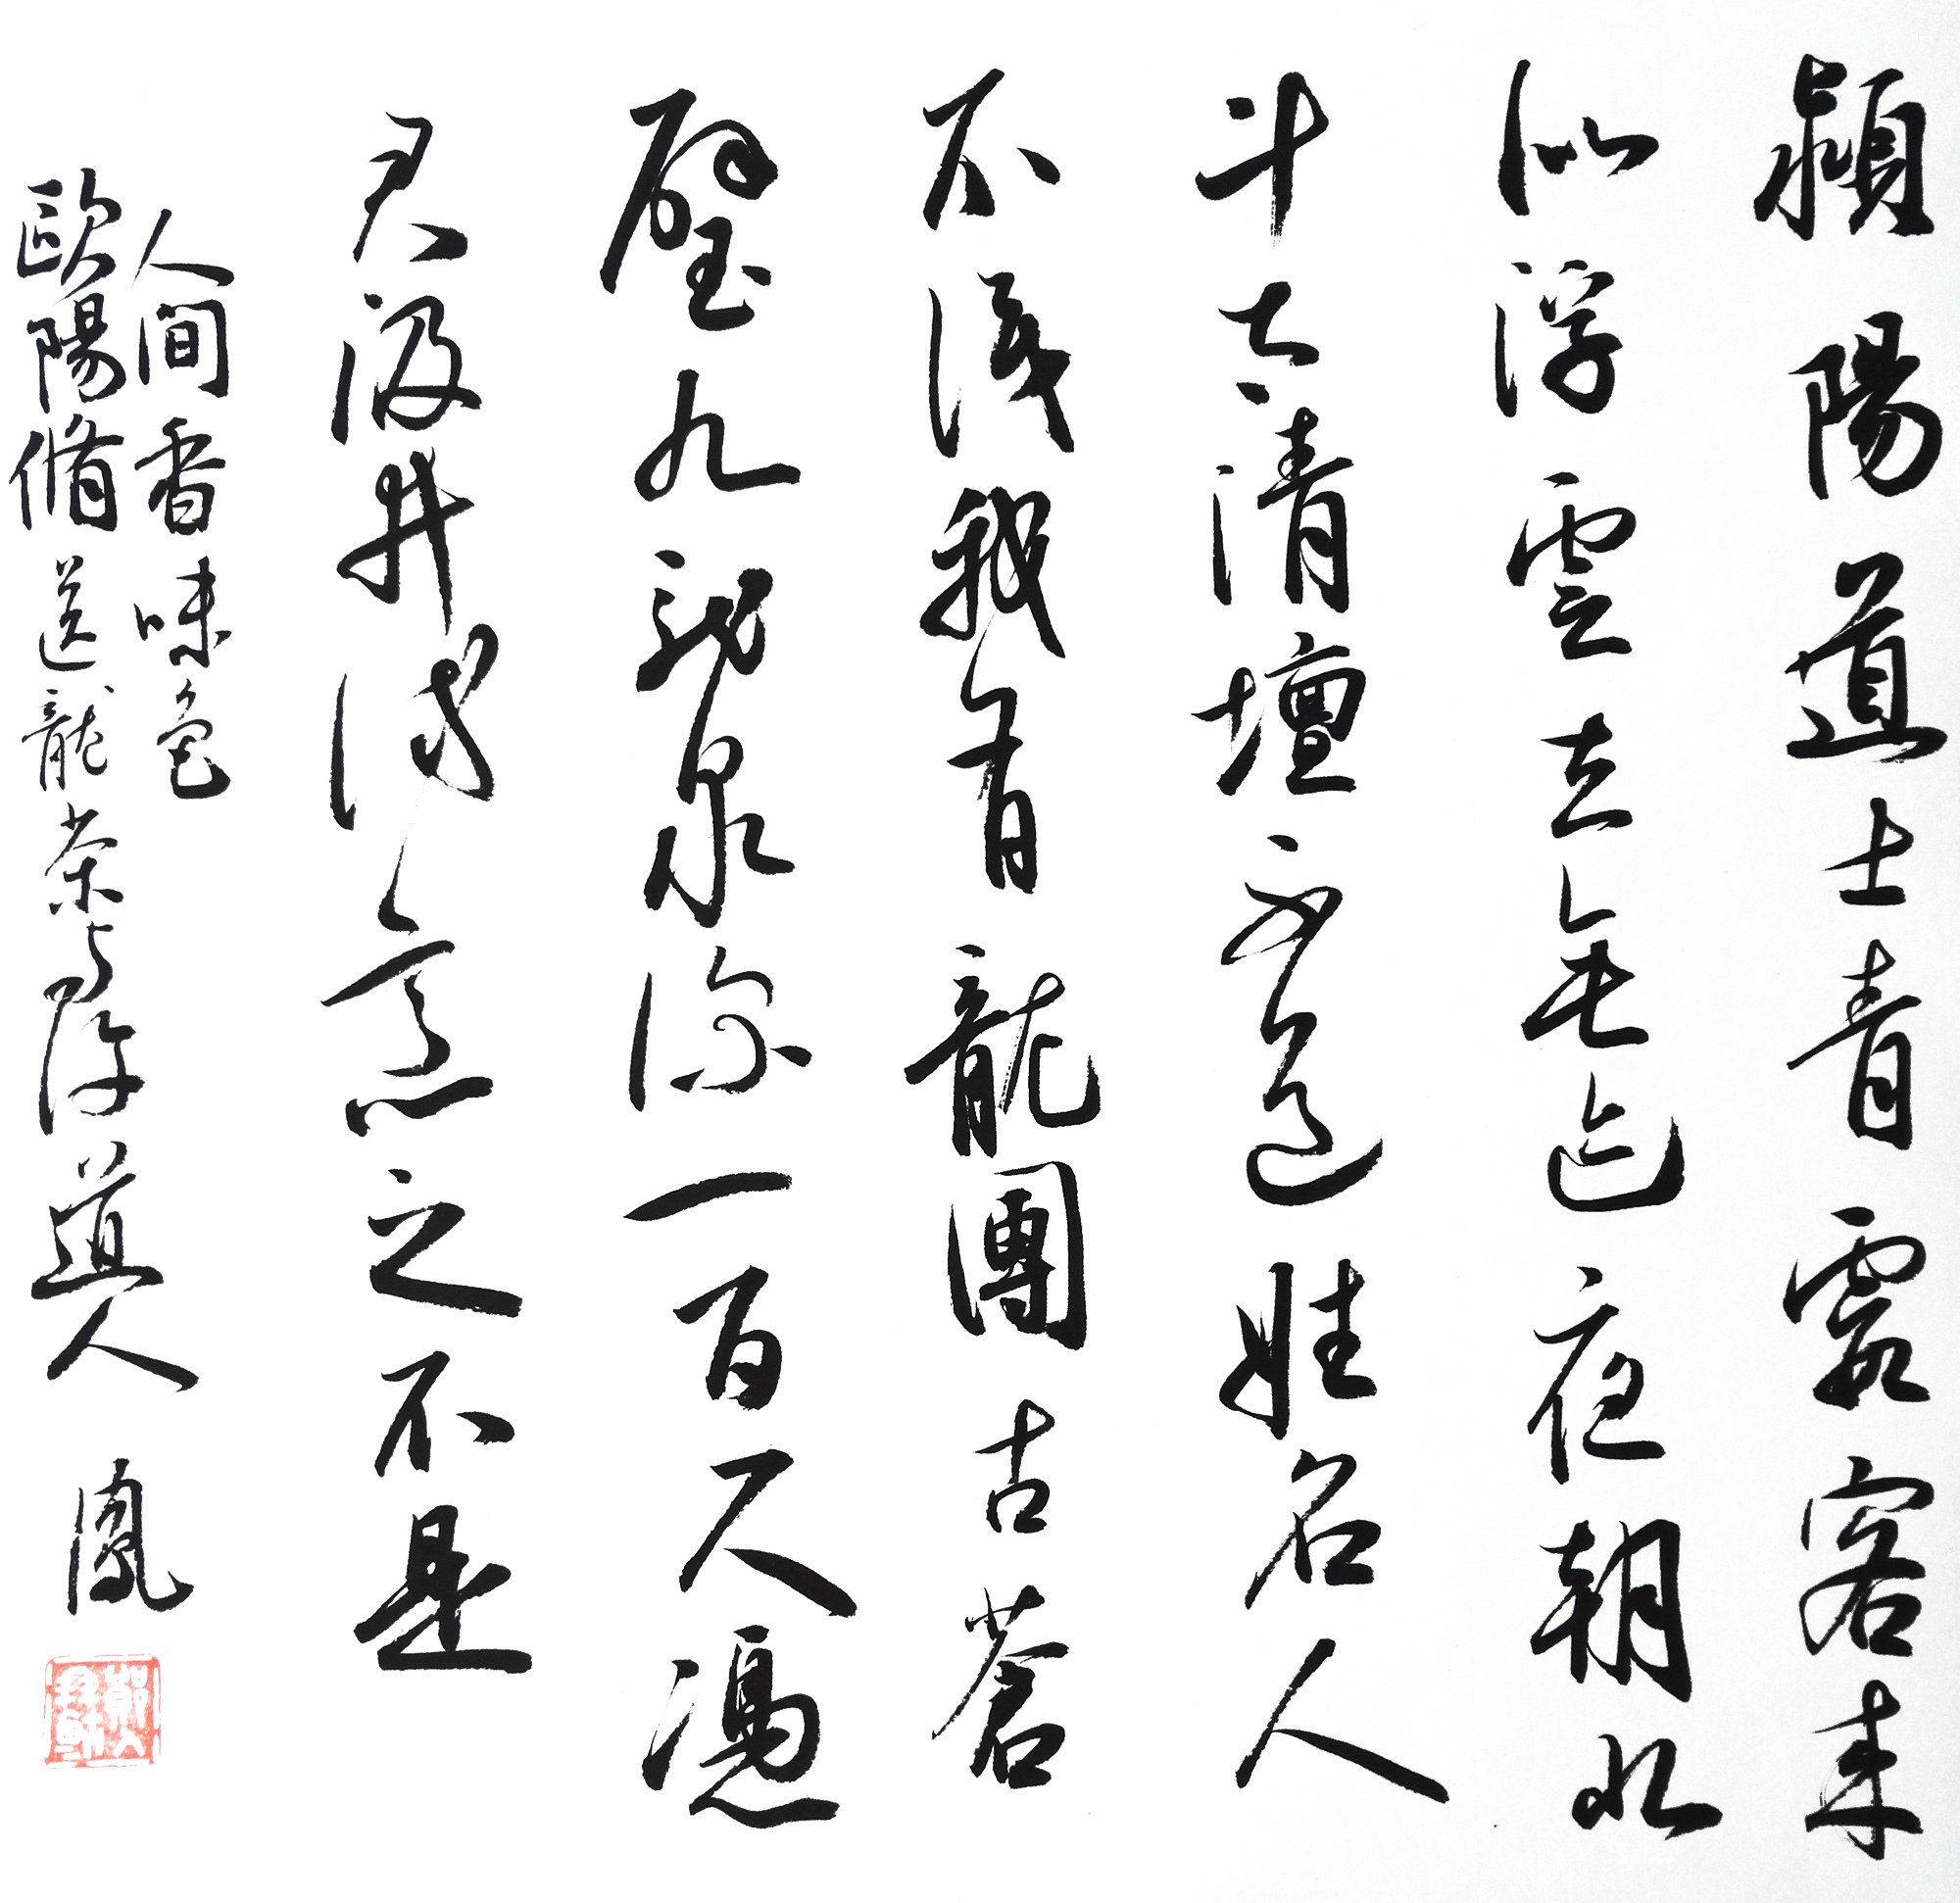 潁陽道士青霞客来
似浮雲去無迹夜朝北
斗太清壇不道姓名人
不識我有龍團古蒼
璧九龍泉深一百尺憑
君汲井試烹之不是
人間香味色
歐陽脩送龍茶與許道人 鳳